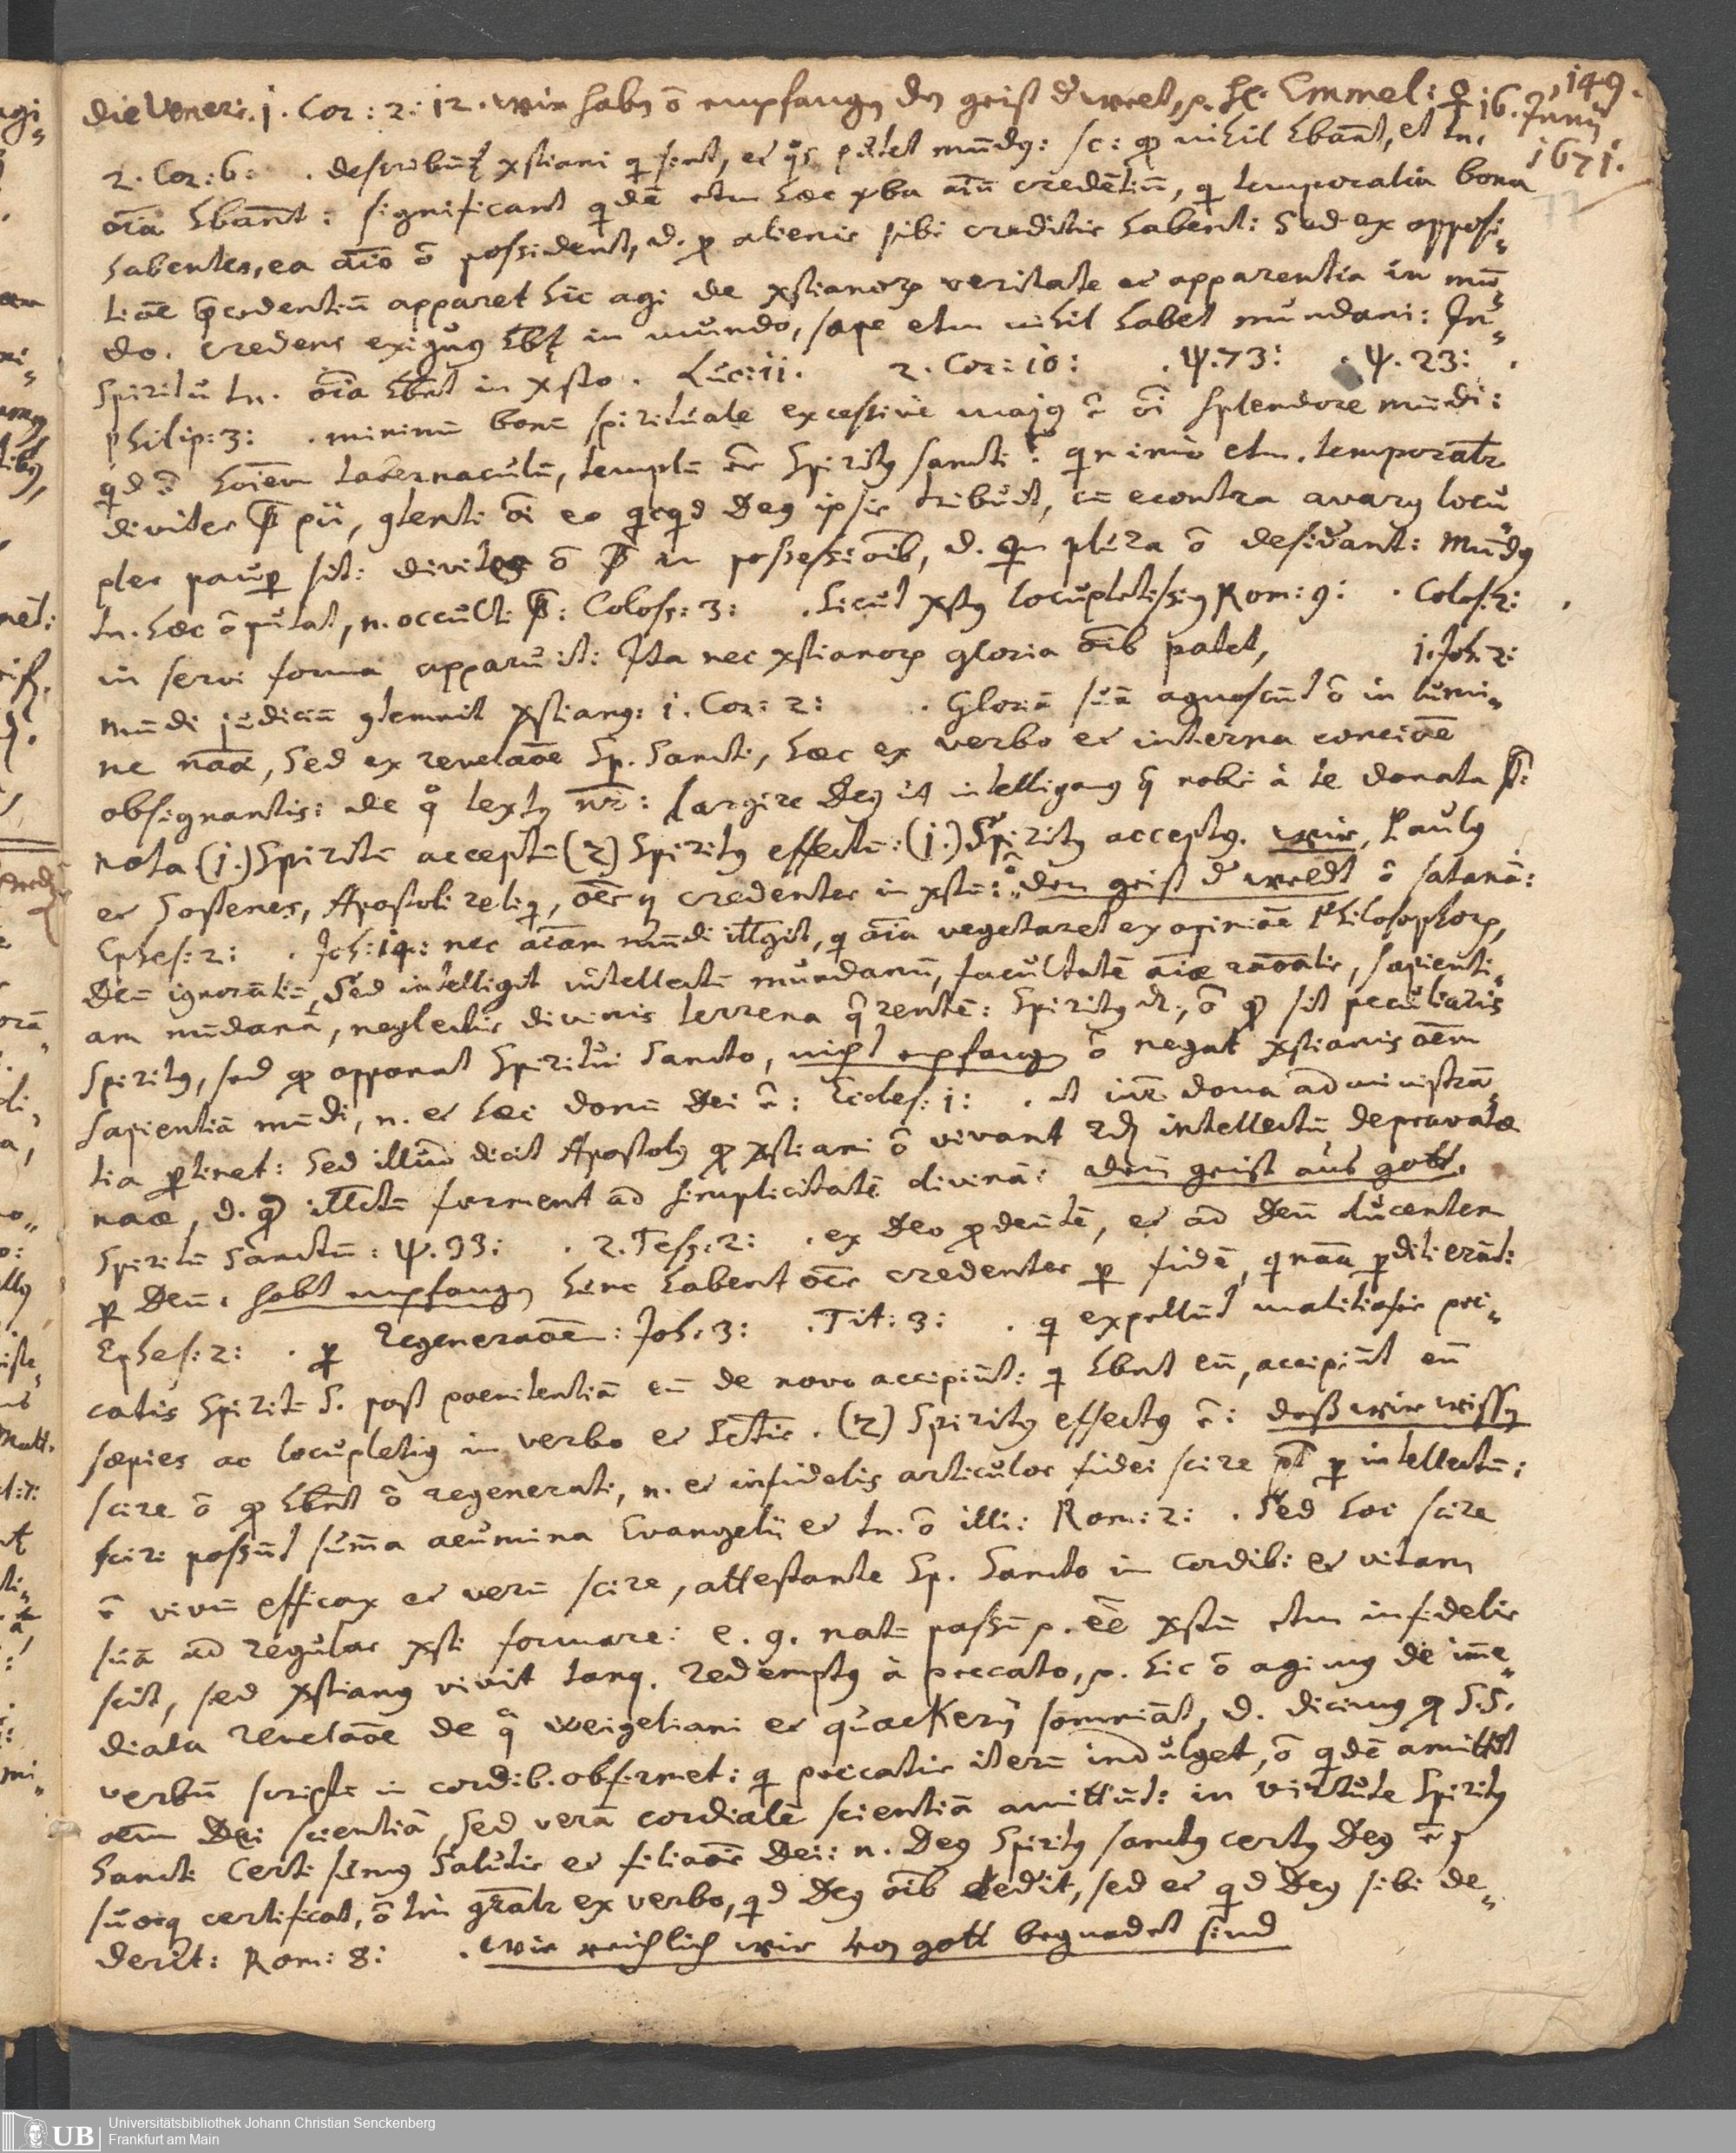 149.
die Veneris. 1. Cor: 2: 12. wir habē ō empfangē dē geist d welt, p. H. Emmel: ♀ 16. Junij
1671.
2. Cor: 6: . describūt xstiani q sint, et qs putet mūdus: sc: qd nihil hbant, et tn.
oīa hbant: significant qdē etm haec verba aīū credētiū, q temporalia bona
habentes, ea aīo ō possident, d. p alienis sibi creditis habent: Sed ex opposi-
tiōe praecedentiū apparet hic agi de xstianorum veritate et apparentia in mū-
do. credens exiguus hbt in mundo, saepe etm nihil habet mundani: In
Spiritu tn. oīa hbt in xsto. Luc: 11. 2. Cor: 10: . Ψ. 73: . Ψ. 23: .
Philip: 3: . minimū bonū spirituale excessivè majus ē oī splendore mūdi:
qd ē hoīem tabernaculū, templū eē Spiritus sancti? quinimò etm. temporalr
divites st pii, contenti oī eo quicqd Deus ipsis tribuit, cū econtra avarus locu
ples paup sit: divites ō st in possessioīb, d. qui plura ō desiderant: Mūdus
tn. haec ō putat, n. occulti st: Coloss: 3: . Sicut Xstus locupletissimus Rom: 9: . Colos: 2: .
in servi forma apparuit: Ita nec xstianorum gloria oīb patet, 1. Joh: 2:
mūdi judiciū contemnit xstianus: 1. Cor: 2: . Gloriā suā agnoscūt ō in lumi-
ne naāe, Sed ex revelaōe Sp. Sancti, haec ex verbo et interna conciōe
obsignantis: de qo textus nr: largire Deus ut intelligamus q nobis à te donata st:
nota (1.) Spiritū acceptū (2) Spiritus effectū: (1.) Spiritus acceptus. wir, Paulus
et Sostenes, Apostoli reliq, oēs q credentes in xstū: ō den geist d weldt ō satanā:
Ephes: 2: . Joh: 14: nec aīam mūdi intelligit, q oīa vegetaret ex opiniōe Philosophorum,
Deū ignorātiū, Sed intelligit intellectū mundanū, facultatē aīae raōalis, sapienti-
am mūdanā, neglectis divinis terrena quaerentē: Spiritus dr., ō qd sit peculiaris
Spiritus, sed qd opponat Spiritui Sancto, nicht empfangē ō negat xstianis oēm
sapientiā mūdi, n. et haec donū Dei ē: Eccles: 1: . et inter dona administrā-
tia ptinet: Sed illud dicit Apostolus qd xstiani ō vivant scdm intellectū depravatae
naāe, d. qd intellectū forment ad simplicitatē divinā: den geist aus gott.
Spiritū Sanctū: Ψ. 33: . 2. Tess: 2: . ex Deo pdeūtē, et ad Deū ducentem
p Deū. habē empfangē hunc habent oēs credentes p fidē, q naāa pditi erāt:
Ephes: 2: . p regeneraōem: Joh: 3: . Tit: 3: . q expellūt malitiosis pec-
catis Spiritū S. post poenitentiā eū de novo accipiūt: q hbnt eū, accipiūt eū
saepies ac locupletius in verbo et Sctis. (2) Spiritus effectus ē: daß wir wissē
scire ō qd hbnt ō regenerati, n. et infidelis articulos fidei scire pt p intellectū:
scire possūt summa acumina Evangelii et tn. ō illi: Rom: 2: . Sed hoc scire
ē vivū efficax et verū scire, attestante Sp. Sancto in cordib: et vitam
suā ad regulas xsti formare: e. g. natū passū p. eē xstū etm infidelis
scit, sed xstianus vivit tanq. redemptus à peccato, p. hic ō agimus de imme-
diata revelaōe de qa weigeliani et quackerij somniāt, d. dicimus qd S.S.
verbū scriptū in cordib. obfirmet: q peccatis iterū indulget, ō qdē amittit
oēm Dei scientiā, Sed verā cordialē scientiā amittūt: in virtute Spiritus
Sancti certi sumus Salutis et filiaōis Dei: n. Deus Spiritus sanctus certus Deus ē et
suosq certificat, ō tm gnralr ex verbo, qd Deus oīb dedit, sed et qd Deus sibi de-
derit: Rom: 8: . wie reichlich wir von gott begnadet sind
UB Universitätsbibliothek Johann Christian Senckenberg
Frankfurt am Main